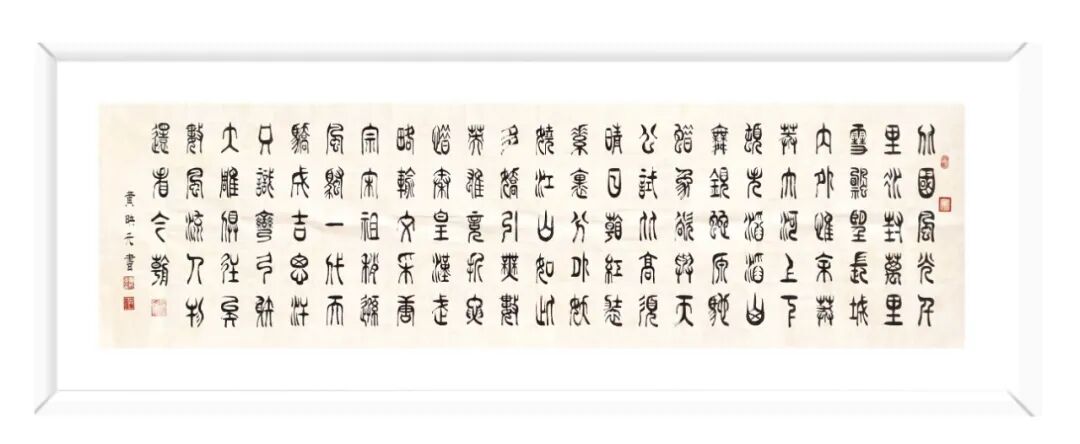 北國風光千
里冰封萬里
雪飄望長城
內外惟余莽
莽大河上下
頓失滔滔山
舞銀蛇原馳
蠟象欲與天
公試比高須
晴日看紅裝
素裹分外妖
嬈江山如此
多嬌引無數
英雄競折腰
惜秦皇漢武
略輸文采唐
宗宋祖稍遜
風騷一代天
驕成吉思汗
只識彎弓射
大雕俱往矣
數風流人物
還看今朝
黄映元書